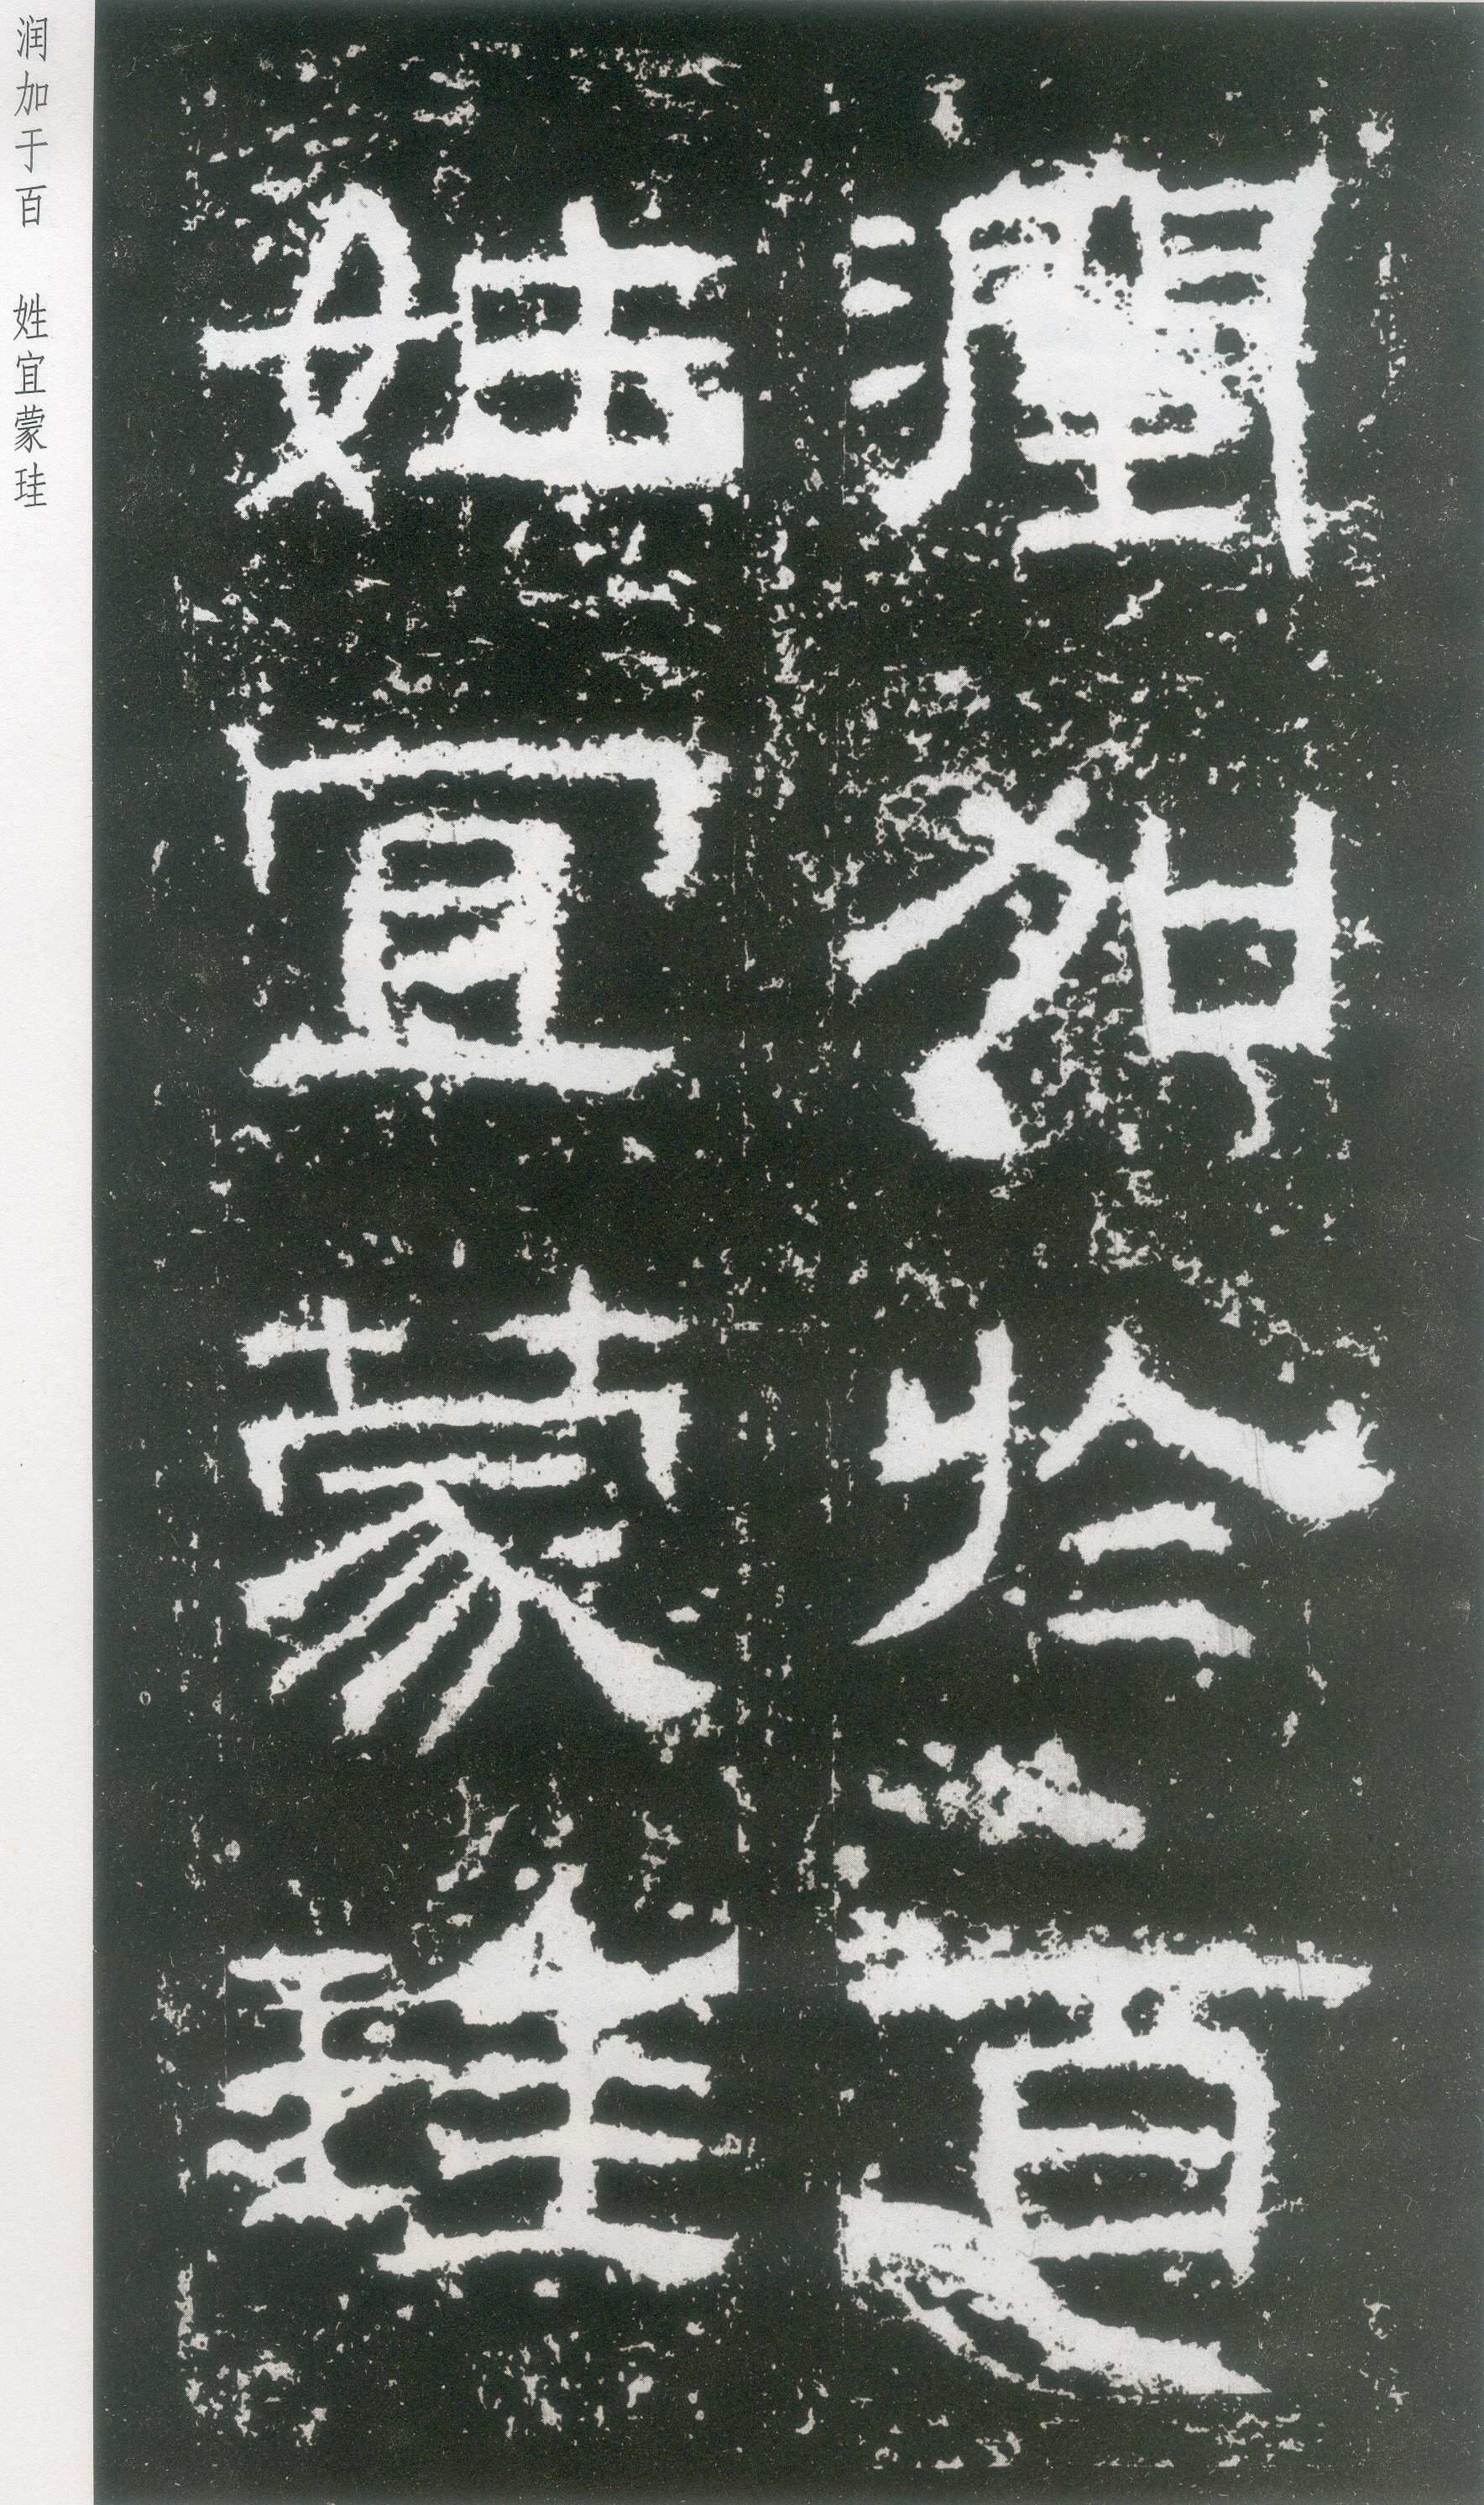 潤加於百
姓宜蒙珪
润加于百 姓宜蒙珪